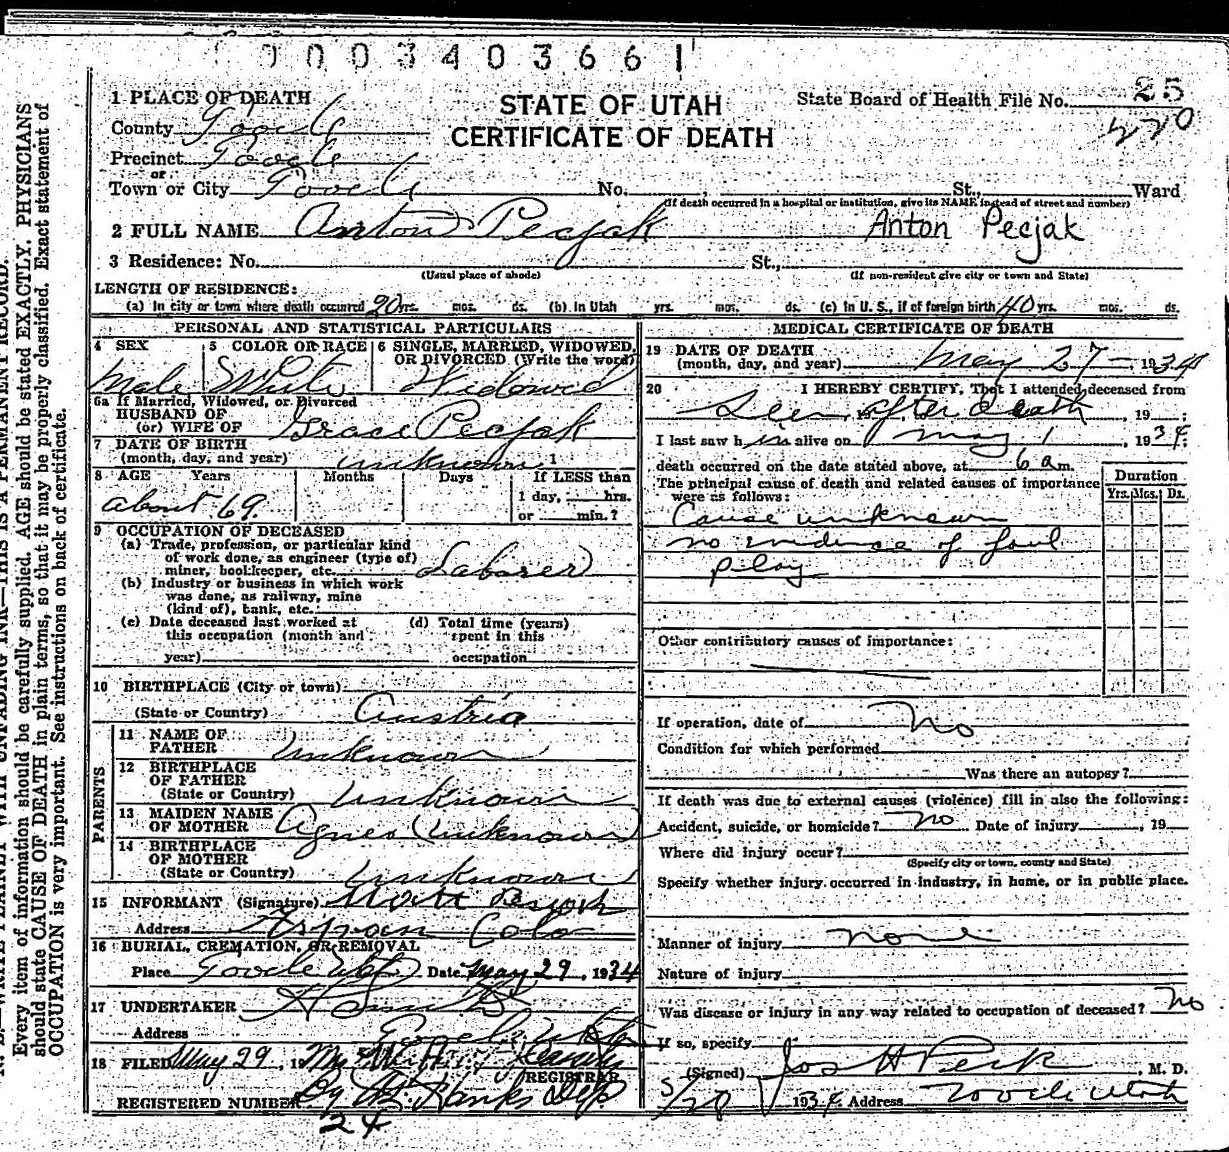 0003403661
1 PLACE OF DEATH
STATE OF UTAH
CERTIFICATE OF DEATH
State Board of Health File No. 25
270
County Tooele
Precinct Tooele
or
Town or City Tooele No. St., Ward
(If death occurred in a hospital or institution, give its NAME instead of street and number)
2 FULL NAME Anton Pecjak Anton Pecjak
3 Residence: No. St.,
(Usual place of abode) (If non-resident give city or town and State)
LENGTH OF RESIDENCE:
(a) In city or town where death occurred 20 yrs. mos. ds. (b) In Utah yrs. mos. ds. (c) In U. S., if of foreign birth 40 yrs. mos. ds.
PERSONAL AND STATISTICAL PARTICULARS
4 SEX
Male
5 COLOR OR RACE
White
6 SINGLE, MARRIED, WIDOWED,
OR DIVORCED (Write the word)
Widowed
6a If Married, Widowed, or Divorced
HUSBAND OF
(or) WIFE OF Grace Pecjak
7 DATE OF BIRTH
(month, day, and year) unknown 1
8 AGE Years Months Days If LESS than
about 69. 1 day, hrs.
or min.?
9 OCCUPATION OF DECEASED
(a) Trade, profession, or particular kind
of work done, as engineer (type of)
miner, bookkeeper, etc. Laborer
(b) Industry or business in which work
was done, as railway, mine
(kind of), bank, etc.
(c) Date deceased last worked at
this occupation (month and
year)
(d) Total time (years)
spent in this
occupation
10 BIRTHPLACE (City or town)
(State or Country) Austria
PARENTS
11 NAME OF
FATHER Unknown
12 BIRTHPLACE
OF FATHER
(State or Country) Unknown
13 MAIDEN NAME
OF MOTHER Agnes (unknown)
14 BIRTHPLACE
OF MOTHER
(State or Country) unknown
15 INFORMANT (Signature)
Address Aspen Colo
16 BURIAL, CREMATION, OR REMOVAL
Place Tooele Utah Date May 29, 1934
17 UNDERTAKER
Address Tooele Utah
18 FILED May 29, 19
REGISTRAR
REGISTERED NUMBER By Hanks Dep
24
MEDICAL CERTIFICATE OF DEATH
19 DATE OF DEATH
(month, day, and year) May 27 - 1934
20 I HEREBY CERTIFY, That I attended deceased from
Seen after death, 19 ;
I last saw him alive on May 1, 1934;
death occurred on the date stated above, at 6 am.
The principal cause of death and related causes of importance
were as follows:
Duration
Yrs. Mos. Ds.
Cause unknown
no evidence of foul
play
Other contributory causes of importance:
If operation, date of No
Condition for which performed
Was there an autopsy?
If death was due to external causes (violence) fill in also the following:
Accident, suicide, or homicide? no Date of injury , 19
Where did injury occur?
(Specify city or town, county and State)
Specify whether injury occurred in industry, in home, or in public place.
Manner of injury none
Nature of injury
Was disease or injury in any way related to occupation of deceased? No
If so, specify
(Signed) Jos H Peck, M. D.
5/28 1934 Address Tooele Utah
Every item of information should be carefully supplied. AGE should be stated EXACTLY. PHYSICIANS
should state CAUSE OF DEATH in plain terms, so that it may be properly classified. Exact statement of
OCCUPATION is very important. See instructions on back of certificate.